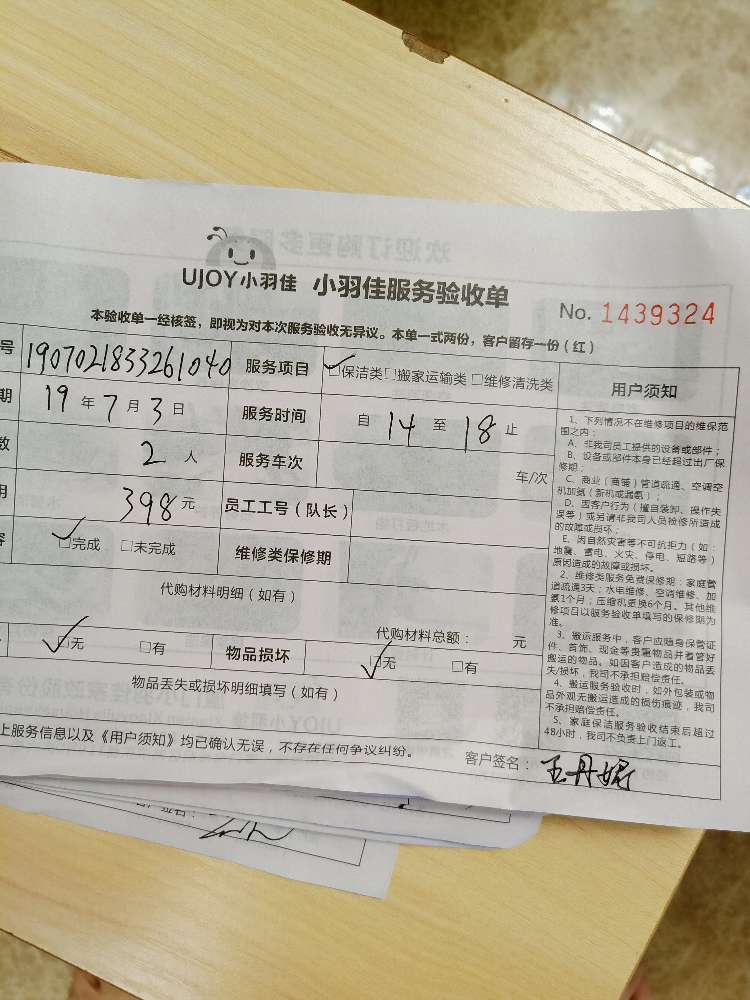 UJOY小羽佳 小羽佳服务验收单
No. 1439324
本验收单一经核签，即视为对本次服务验收无异议。本单一式两份，客户留存一份（红）
号 1907021833261040 服务项目 ☑保洁类 □搬家运输类 □维修清洗类
期 19年7月3日 服务时间 自14至18止
数 2人 服务车次 车/次
用 398元 员工工号（队长）
容 ☑完成 □未完成 维修类保修期
代购材料明细（如有）
代购材料总额： 元
☑无 □有 物品损坏 ☑无 □有
物品丢失或损坏明细填写（如有）
上服务信息以及《用户须知》均已确认无误，不存在任何争议纠纷。
客户签名：王丹妮
用户须知
1、下列情况不在维修项目的维保范
围之内：
A、非我司员工提供的设备或部件；
B、设备或部件本身已经超过出厂保
修期；
C、商业（商铺）管道疏通、空调空
机加氨（新机或漏氨）；
D、因客户行为（擅自装卸、操作失
误等）或另请非我司人员检修所造成
的故障或损坏；
E、因自然灾害等不可抗拒力（如：
地震、雷电、火灾、停电、短路等）
原因造成的故障或损坏。
2、维修类服务免费保修期：家庭管
道疏通3天；水电维修、空调维修、加
氨1个月；压缩机更换6个月。其他维
修项目以服务验收单填写的保修期为
准。
3、搬运服务中，客户应随身保管证
件、首饰、现金等贵重物品并看管好
搬运的物品。如因客户造成的物品丢
失/损坏，我司不承担赔偿责任。
4、搬运服务验收时，如外包装或物
品外观无搬运造成的损伤痕迹，我司
不承担赔偿责任。
5、家庭保洁服务验收结束后超过
48小时，我司不负责上门返工。